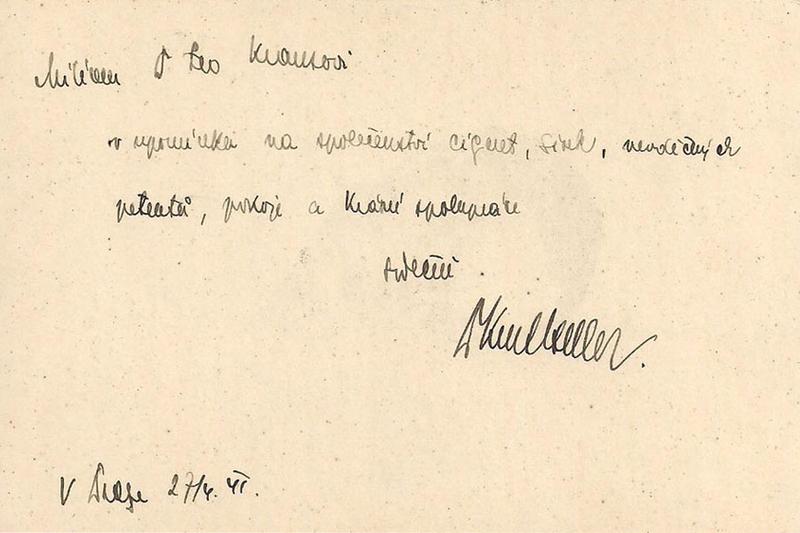 Milému Dr Leo Krausovi
v upomínku na společenství cigaret, sirek, nevděčných
petentů, pokoje a krásné spolupráce
srdečně
V Praze 27/4. 41.